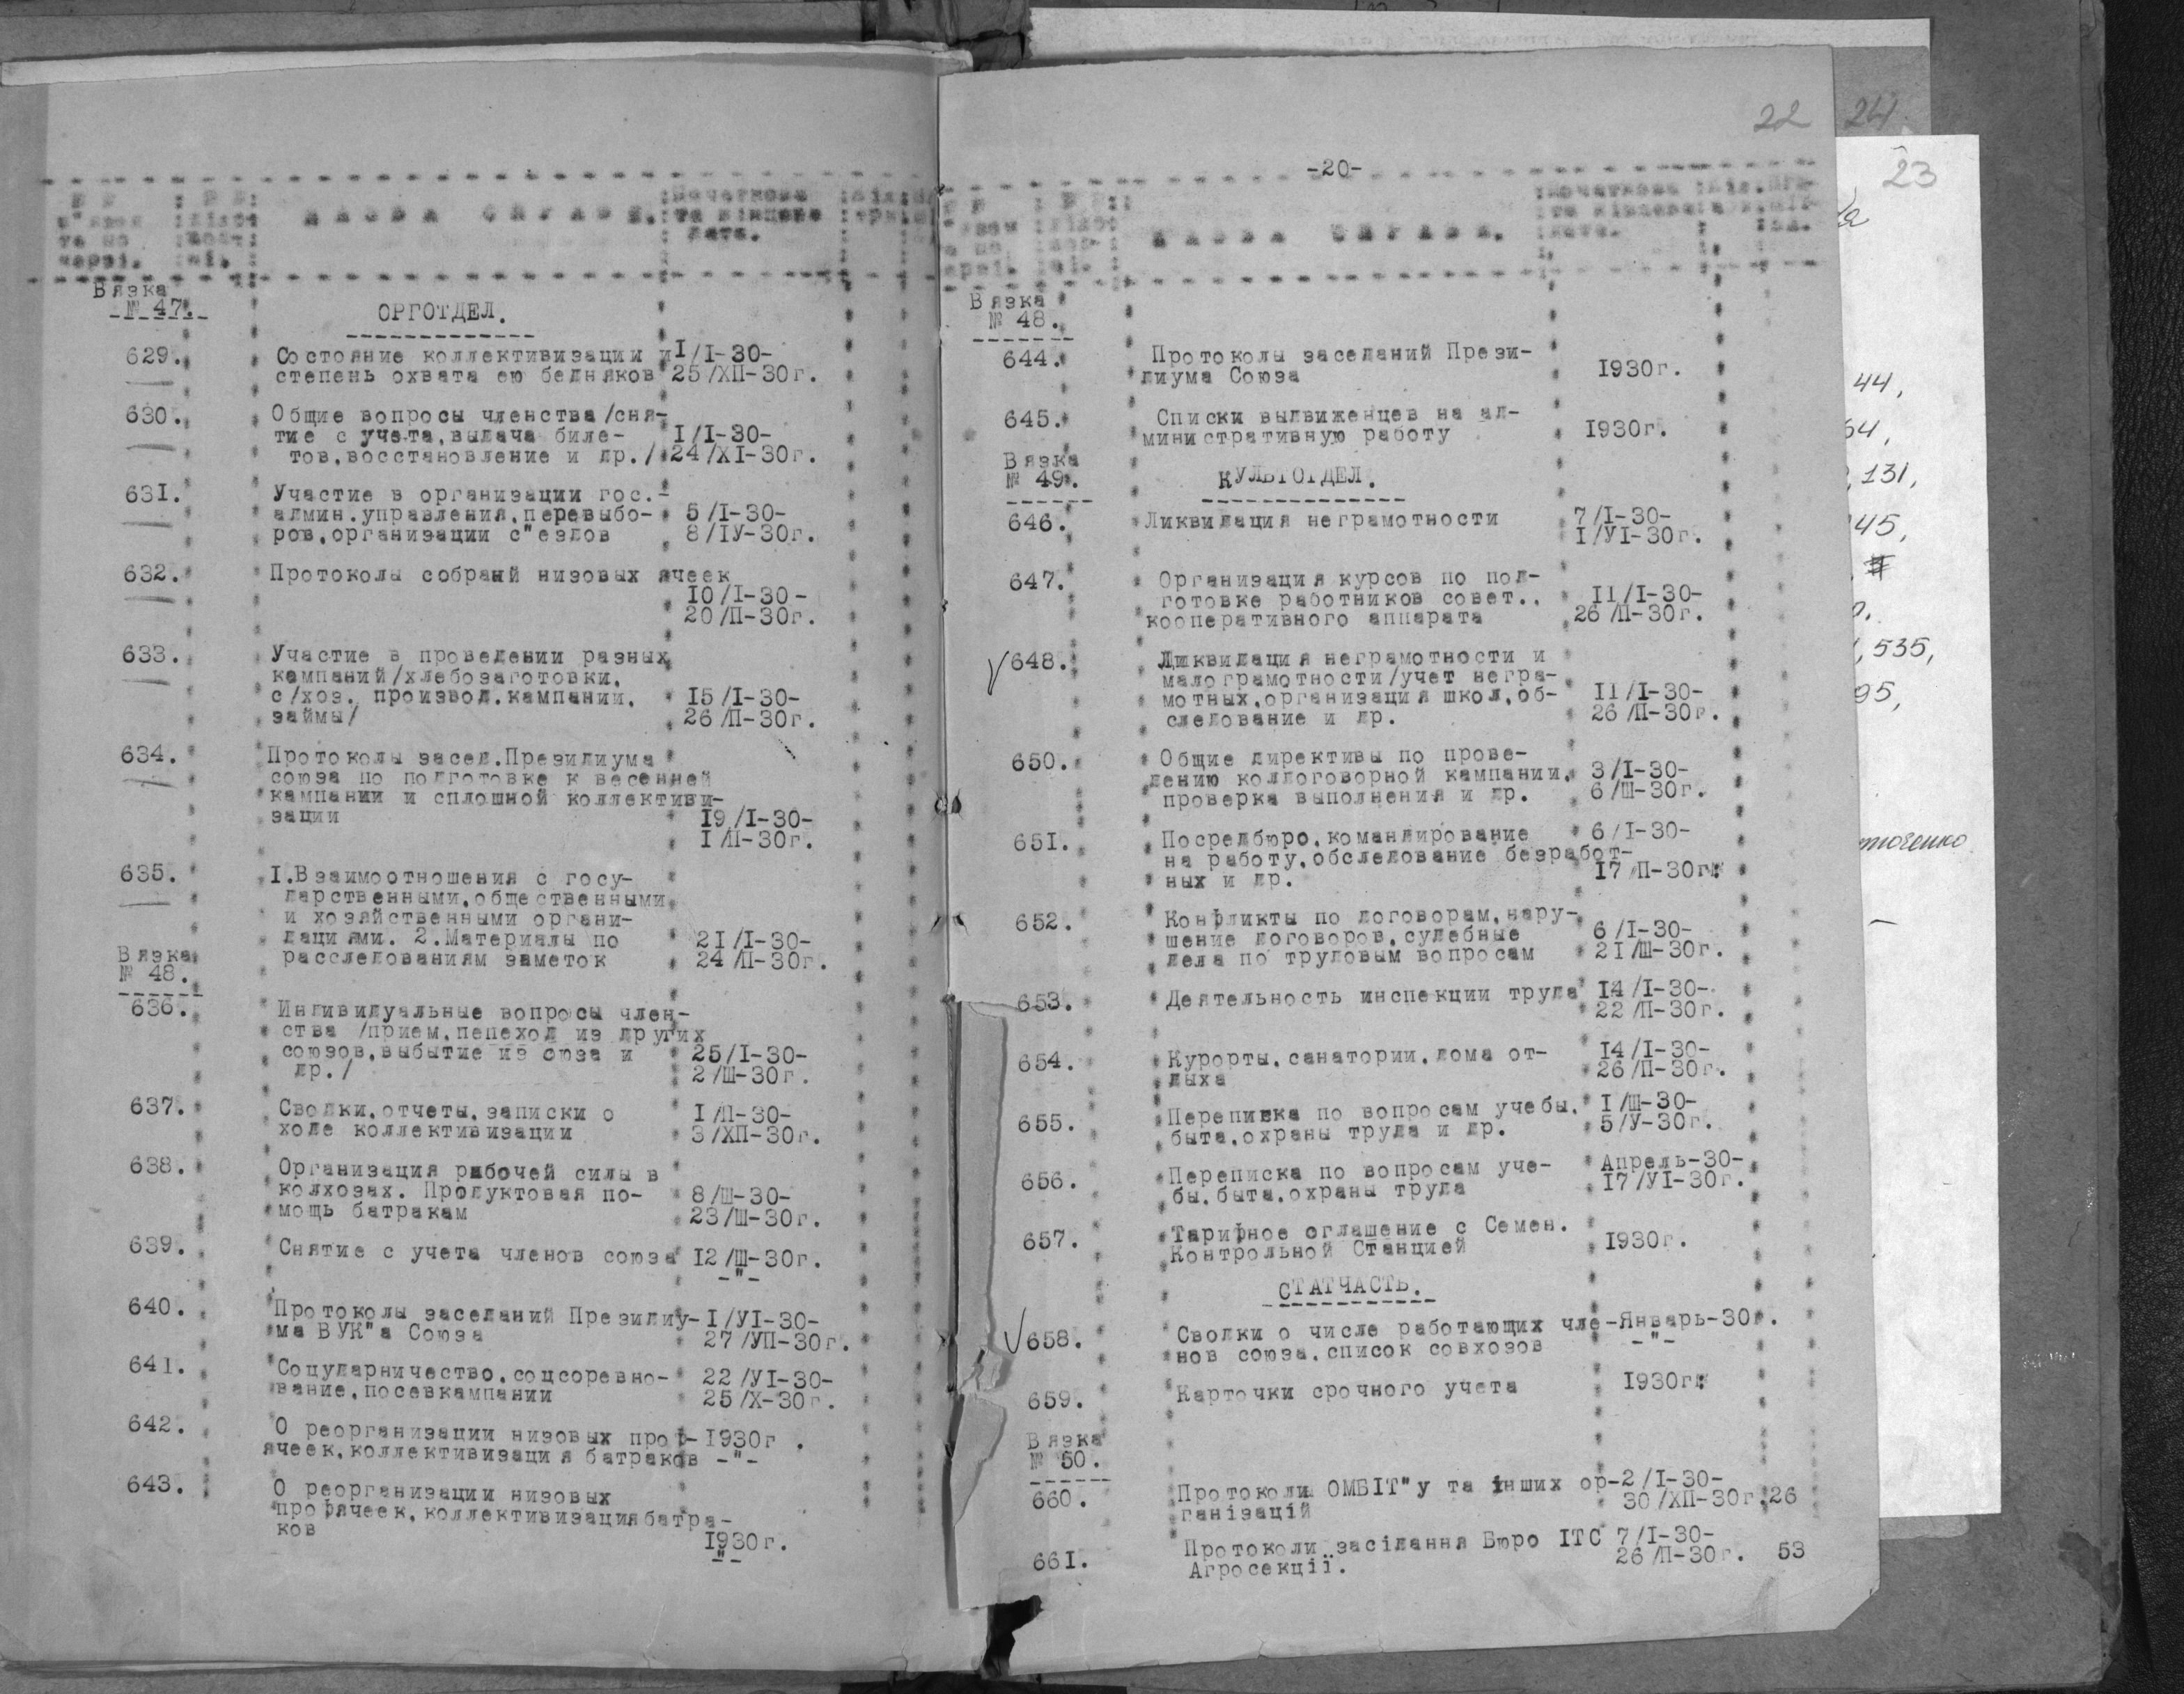 НАЗВА СПРАВИ.
Початкова
та кінцева
дата.
Вязка
№ 47.
ОРГОТДЕЛ.
629. Состояние коллективизации и I/I-30-
степень охвата ею бедняков 25/XII-30г.
630. Общие вопросы членства/сня-
тие с учета,выдача биле- I/I-30-
тов,восстановление и др./ 24/XI-30г.
631. Участие в организации гос.-
админ.управления,перевыбо- 5/I-30-
ров,организации с"ездов 8/IУ-30г.
632. Протоколы собраний низовых ячеек
10/I-30-
20/II-30г.
633. Участие в проведении разных
кампаний/хлебозаготовки,
с/хоз. производ.кампании, 15/I-30-
займы/ 26/II-30г.
634. Протоколы засед.Президиума
союза по подготовке к весенней
кампании и сплошной коллективи-
зации 19/I-30-
I/II-30г.
635. I.Взаимоотношения с госу-
дарственными,общественными
и хозяйственными органи-
дациями. 2.Материалы по 21/I-30-
расследованиям заметок 24/II-30г.
Вязка
№ 48.
636. Индивидуальные вопросы член-
ства /прием,пепеход из других
союзов,выбытие из союза и 25/I-30-
др./ 2/Ш-30г.
637. Сводки,отчеты,записки о I/II-30-
ходе коллективизации 3/XII-30г.
638. Организация рабочей силы в
колхозах. Продуктовая по- 8/Ш-30-
мощь батракам 23/Ш-30г.
639. Снятие с учета членов союза 12/Ш-30г.
-"-
640. Протоколы заседаний Президиу- I/УI-30-
ма ВУК"а Союза 27/УII-30г.
641. Соцударничество,соцсоревно- 22/УI-30-
вание,посевкампании 25/X-30г.
642. О реорганизации низовых проф- 1930г.
ячеек,коллективизация батраков -"-
643. О реорганизации низовых
профячеек,коллективизациябатра-
ков 1930г.
"-
22
-20-
НАЗВА СПРАВИ.
Початкова
та кінцева
дата.
Вязка
№ 48.
644. Протоколы заседаний Прези-
диума Союза 1930г.
645. Списки выдвиженцев на ад-
министративную работу 1930г.
Вязка
№ 49.
КУЛЬТОТДЕЛ.
646. Ликвидация неграмотности 7/I-30-
I/УI-30г.
647. Организация курсов по под-
готовке работников совет., 11/I-30-
кооперативного аппарата 26/II-30г.
648. Ликвидация неграмотности и
малограмотности/учет негра-
мотных,организация школ,об- 11/I-30-
следование и др. 26/II-30г.
650. Общие директивы по прове-
дению колдоговорной кампании, 3/I-30-
проверка выполнения и др. 6/Ш-30г.
651. Посредбюро,командирование 6/I-30-
на работу,обследование безработ-
ных и др. 17/II-30г.
652. Конфликты по договорам,нару-
шение договоров,судебные 6/I-30-
дела по трудовым вопросам 21/Ш-30г.
653. Деятельность инспекции труда 14/I-30-
22/II-30г.
654. Курорты,санатории,дома от- 14/I-30-
дыха 26/II-30г.
655. Переписка по вопросам учебы, I/Ш-30-
быта,охраны труда и др. 5/У-30г.
656. Переписка по вопросам уче- Апрель-30-
бы,быта,охраны труда 17/УI-30г.
657. Тарифное оглашение с Семен.
Контрольной Станцией 1930г.
СТАТЧАСТЬ.
658. Сводки о числе работающих чле- Январь-30г.
нов союза,список совхозов -"-
659. Карточки срочного учета 1930г.
Вязка
№ 50.
660. Протоколи ОМБІТ"у та інших ор- 2/I-30-
ганізацій 30/XII-30г. 26
661. Протоколи засідання Бюро ІТС 7/I-30-
Агросекції. 26/II-30г. 53
24
23
44,
64,
131,
45,
535,
95,